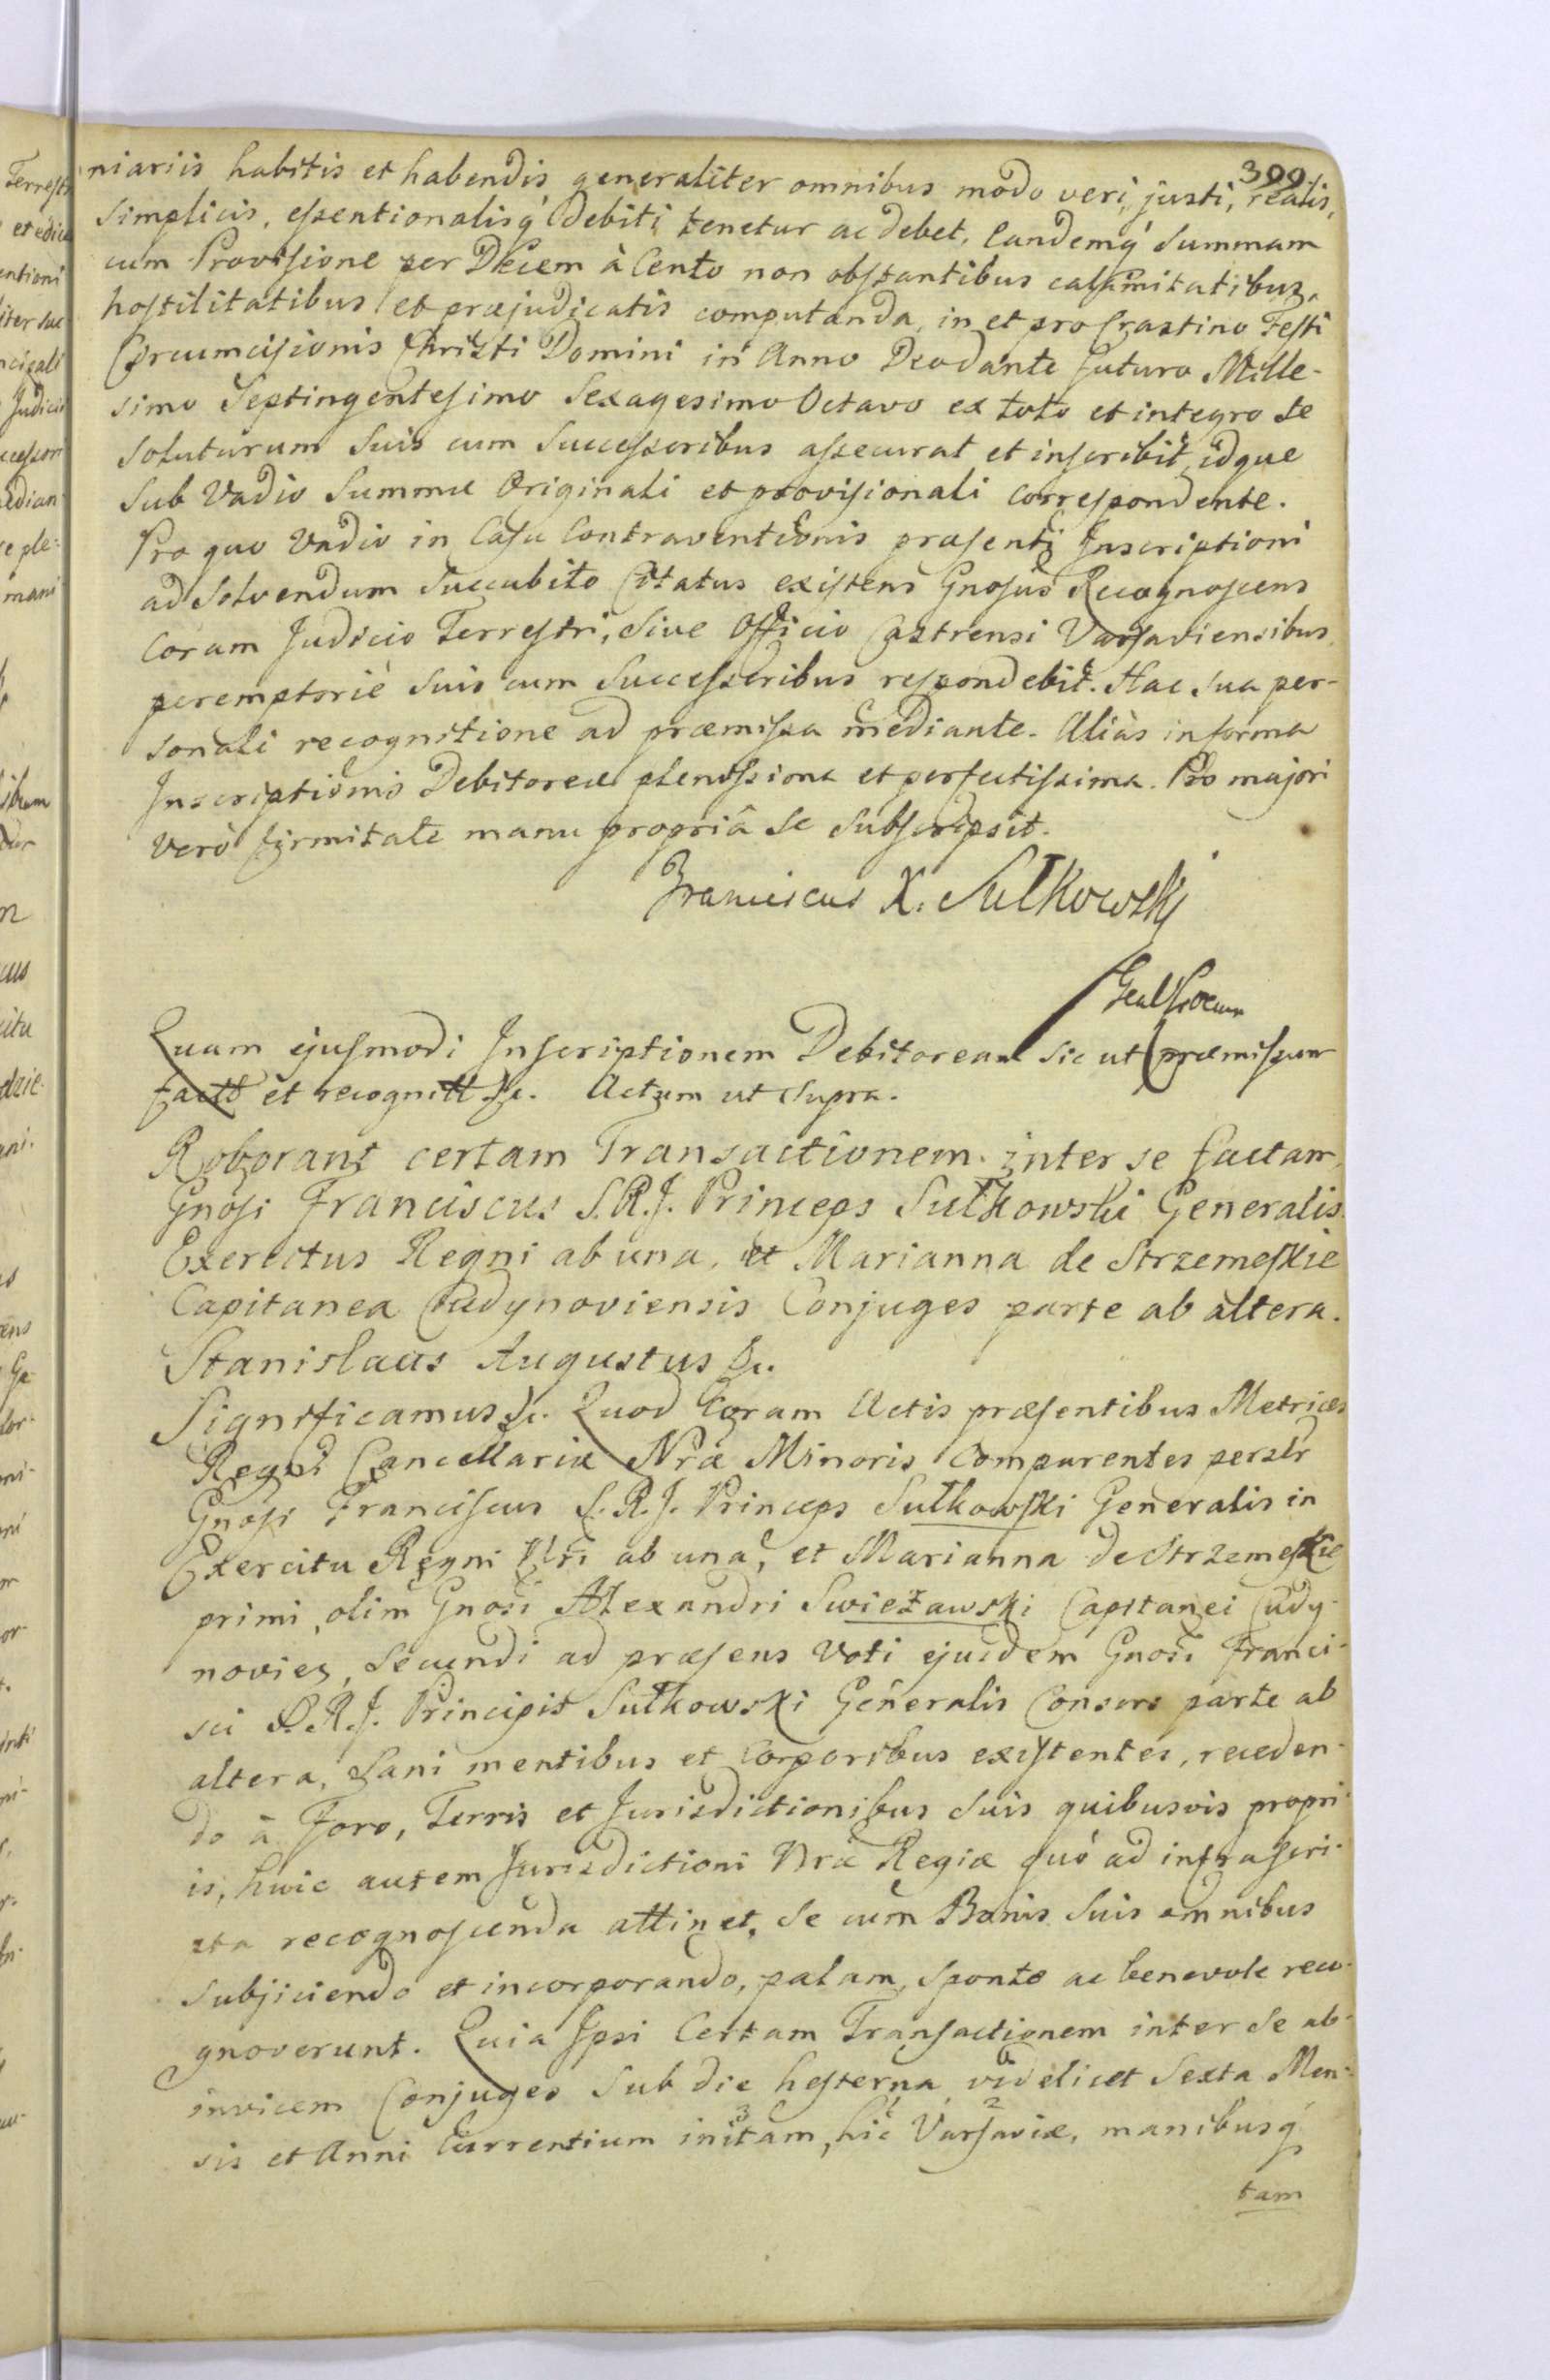 399.
niariis habitis et habendis generaliter omnibus modo veri, justi, realis,
simplicis, essentionalisq́ Debiti tenetur ac debet, Eandemq́ Summam
cum Provisione per Decem à Cento non obstantibus calamitatibus,
hostilitatibus et præjudicatis computanda, in et pro Crastino Festi
Circumcisionis Christi Domini in Anno Deo dante futuro Mille-
simo Septingentesimo Sexagesimo Octavo ex toto et integro se
soluturum suis cum Successoribus assecurat et inscribit, idque
sub Vadio Summæ Originali et provisionali correspondente.
Pro quo Vadio in Casu Contraventionis præsenti Inscriptioni
ad solvendum succubito Citatus existens Gnosus Recognoscens
coram Judicio Terrestri, sive Officio Castrensi Varsaviensibus
peremptoriè suis cum Successoribus respondebit. Hac sua per-
sonali recognitione ad præmissa mediante. Aliàs in forma
Inscriptionis Debitoreæ plenissima et perfectissima. Pro majori
verò firmitate manu propriâ se subscripsit.
Franciscus X. Sułkowski
Quam ejusmodi Inscriptionem Debitoream sic ut præmissum
factt et recognitt &c. Actum ut supra.
Roborant certam Transactionem inter se factam
Gnosi Franciscus S.R.J. Princeps Sułkowski Generalis
Exerectus Regni ab una, et Marianna de Strzemeskie
Capitanea Cudynoviensis Conjuges parte ab altera.
Stanislaus Augustus &c.
Significamus &c. Quod Coram Actis præsentibus Metrices
Regni Cancellariæ Nræ Minoris Comparentes persłr
Gnosi Franciscus S.R.J. Princeps Sułkowski Generalis in
Exercitu Regni Nri ab una, et Marianna de Strzemeskie
primi, olim Gnosi Alexandri Swieżawski Capitanei Cudy-
novien, secundi ad præsens Voti ejusdem Gnosi Franci-
sci S.R.J. Principis Sułkowski Generalis Consors parte ab
altera, sani mentibus et Corporibus existentes, receden-
do à Foro, Terris et Jurisdictionibus suis quibusvis propri-
is, huic autem Jurisdictioni Nræ Regiæ quó ad infrascri-
pta recognoscenda attinet, se cum Bonis suis omnibus
subjiciendo et incorporando, palam, sponte ac benevole reco-
gnoverunt. Quia Ipsi Certam Transactionem inter se ab-
invicem Conjuges sub die hesterna videlicet Sexta Men-
sis et Anni Currentium initam, hic Varsaviæ, manibusq́
tam